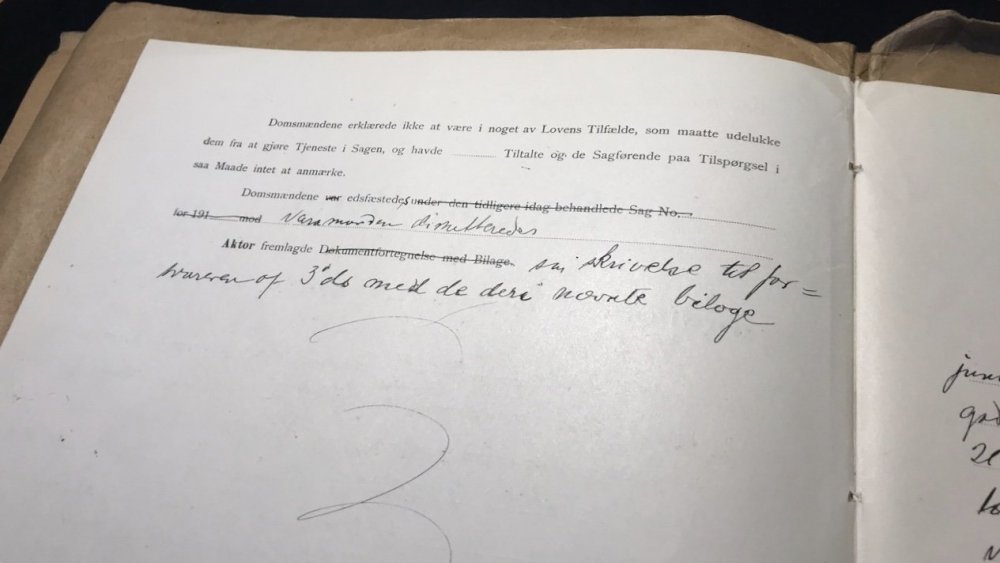 Domsmændene erklærede ikke at være i noget av Lovens Tilfælde, som maatte udelukke
dem fra at gjøre Tjeneste i Sagen, og havde ............ Tiltalte og de Sagførende paa Tilspørgsel i
saa Maade intet at anmærke.
Domsmændene var edsfæstedes under den tidligere idag behandlede Sag No.
for 191 mod Varamanden dimitteredes
Aktor fremlagde Dokumentfortegnelse med Bilage. sin skrivelse til for=
svareren af 3 ds med de deri nævnte bilage